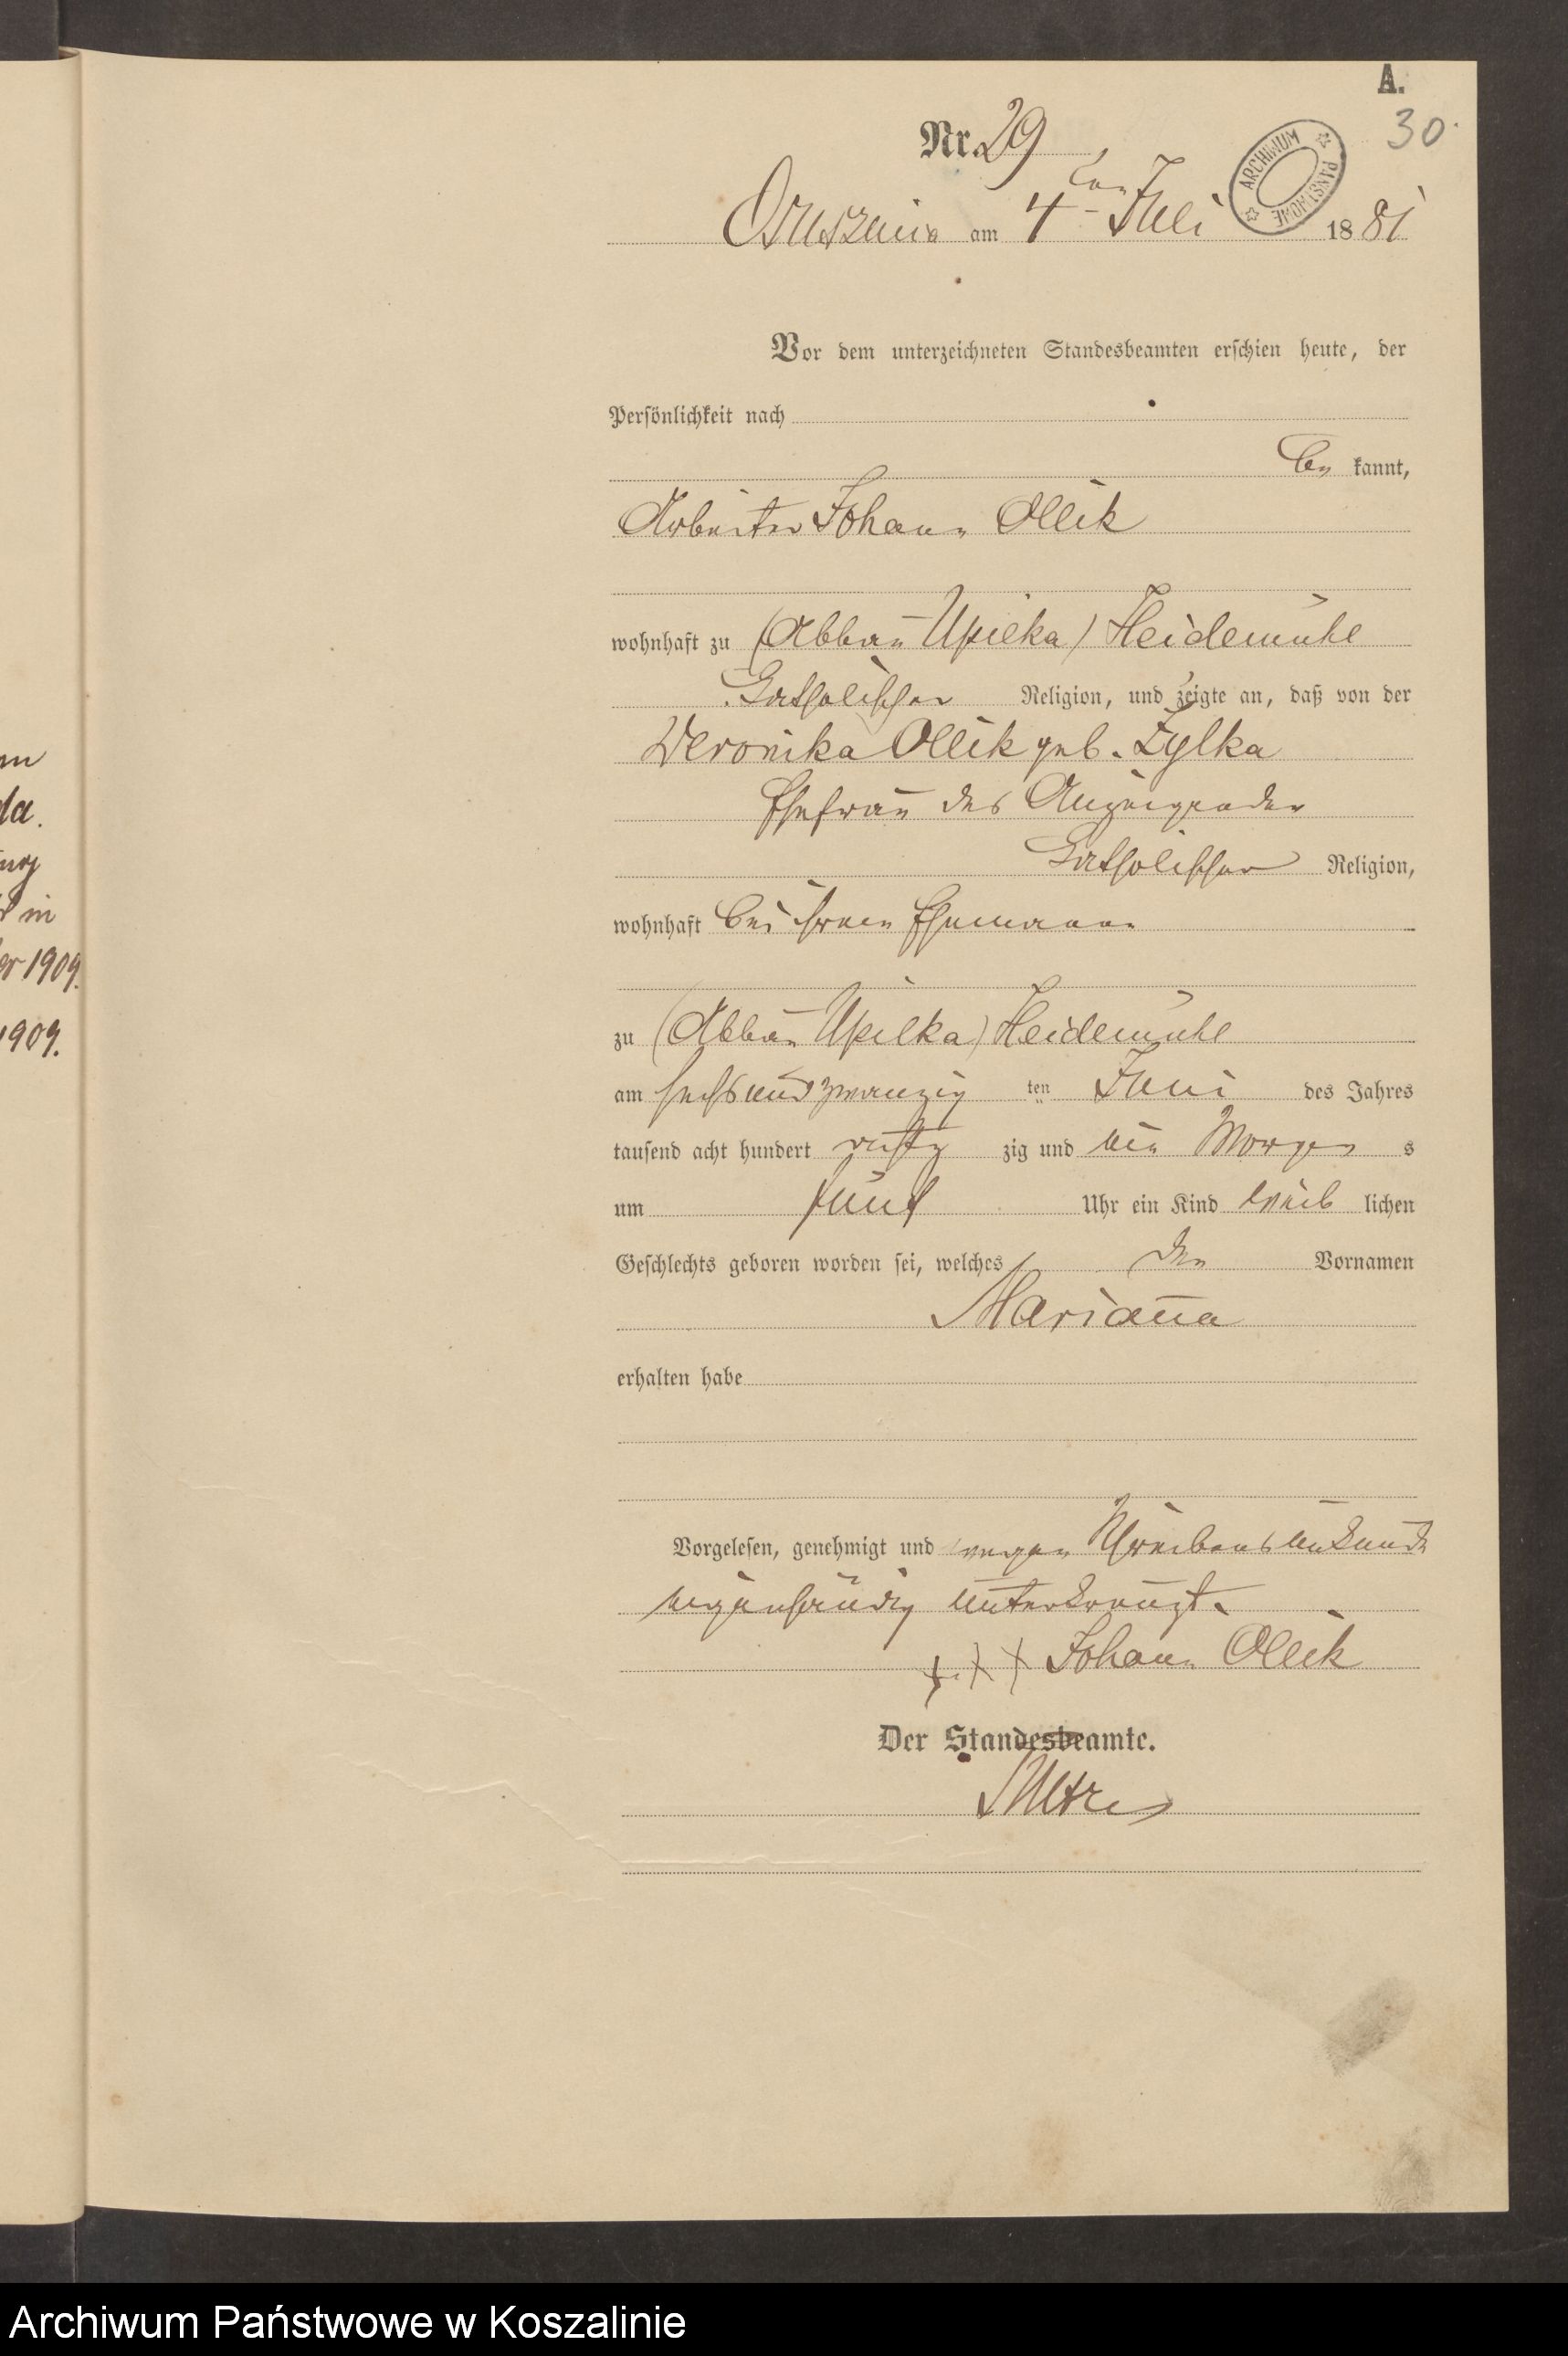 A.
30.
Nr. 29
ARCHIWUM PAŃSTWOWE
Osusznica am 4ten Juli 1881
Vor dem unterzeichneten Standesbeamten erschien heute, der
Persönlichkeit nach
be kannt,
Arbeiter Johann Ollik
wohnhaft zu (Abbau Upilka) Heidemühl
Catholischer Religion, und zeigte an, daß von der
Veronika Ollik geb. Zylka
Ehefrau des Anzeigenden
Catholischer Religion,
wohnhaft bei ihrem Ehemanne
zu (Abbau Upilka) Heidemühl
am sechsundzwanzig ten Juni des Jahres
tausend acht hundert achtzig zig und ein Morgen s
um fünf Uhr ein Kind weib lichen
Geschlechts geboren worden sei, welches den Vornamen
Marianna
erhalten habe
Vorgelesen, genehmigt und wegen Schreibensunkunde
eigenhändig unterkreuzt.
+++ Johann Ollik
Der Standesbeamte.
m
da.
in
er 1909.
1909.
Archiwum Państwowe w Koszalinie